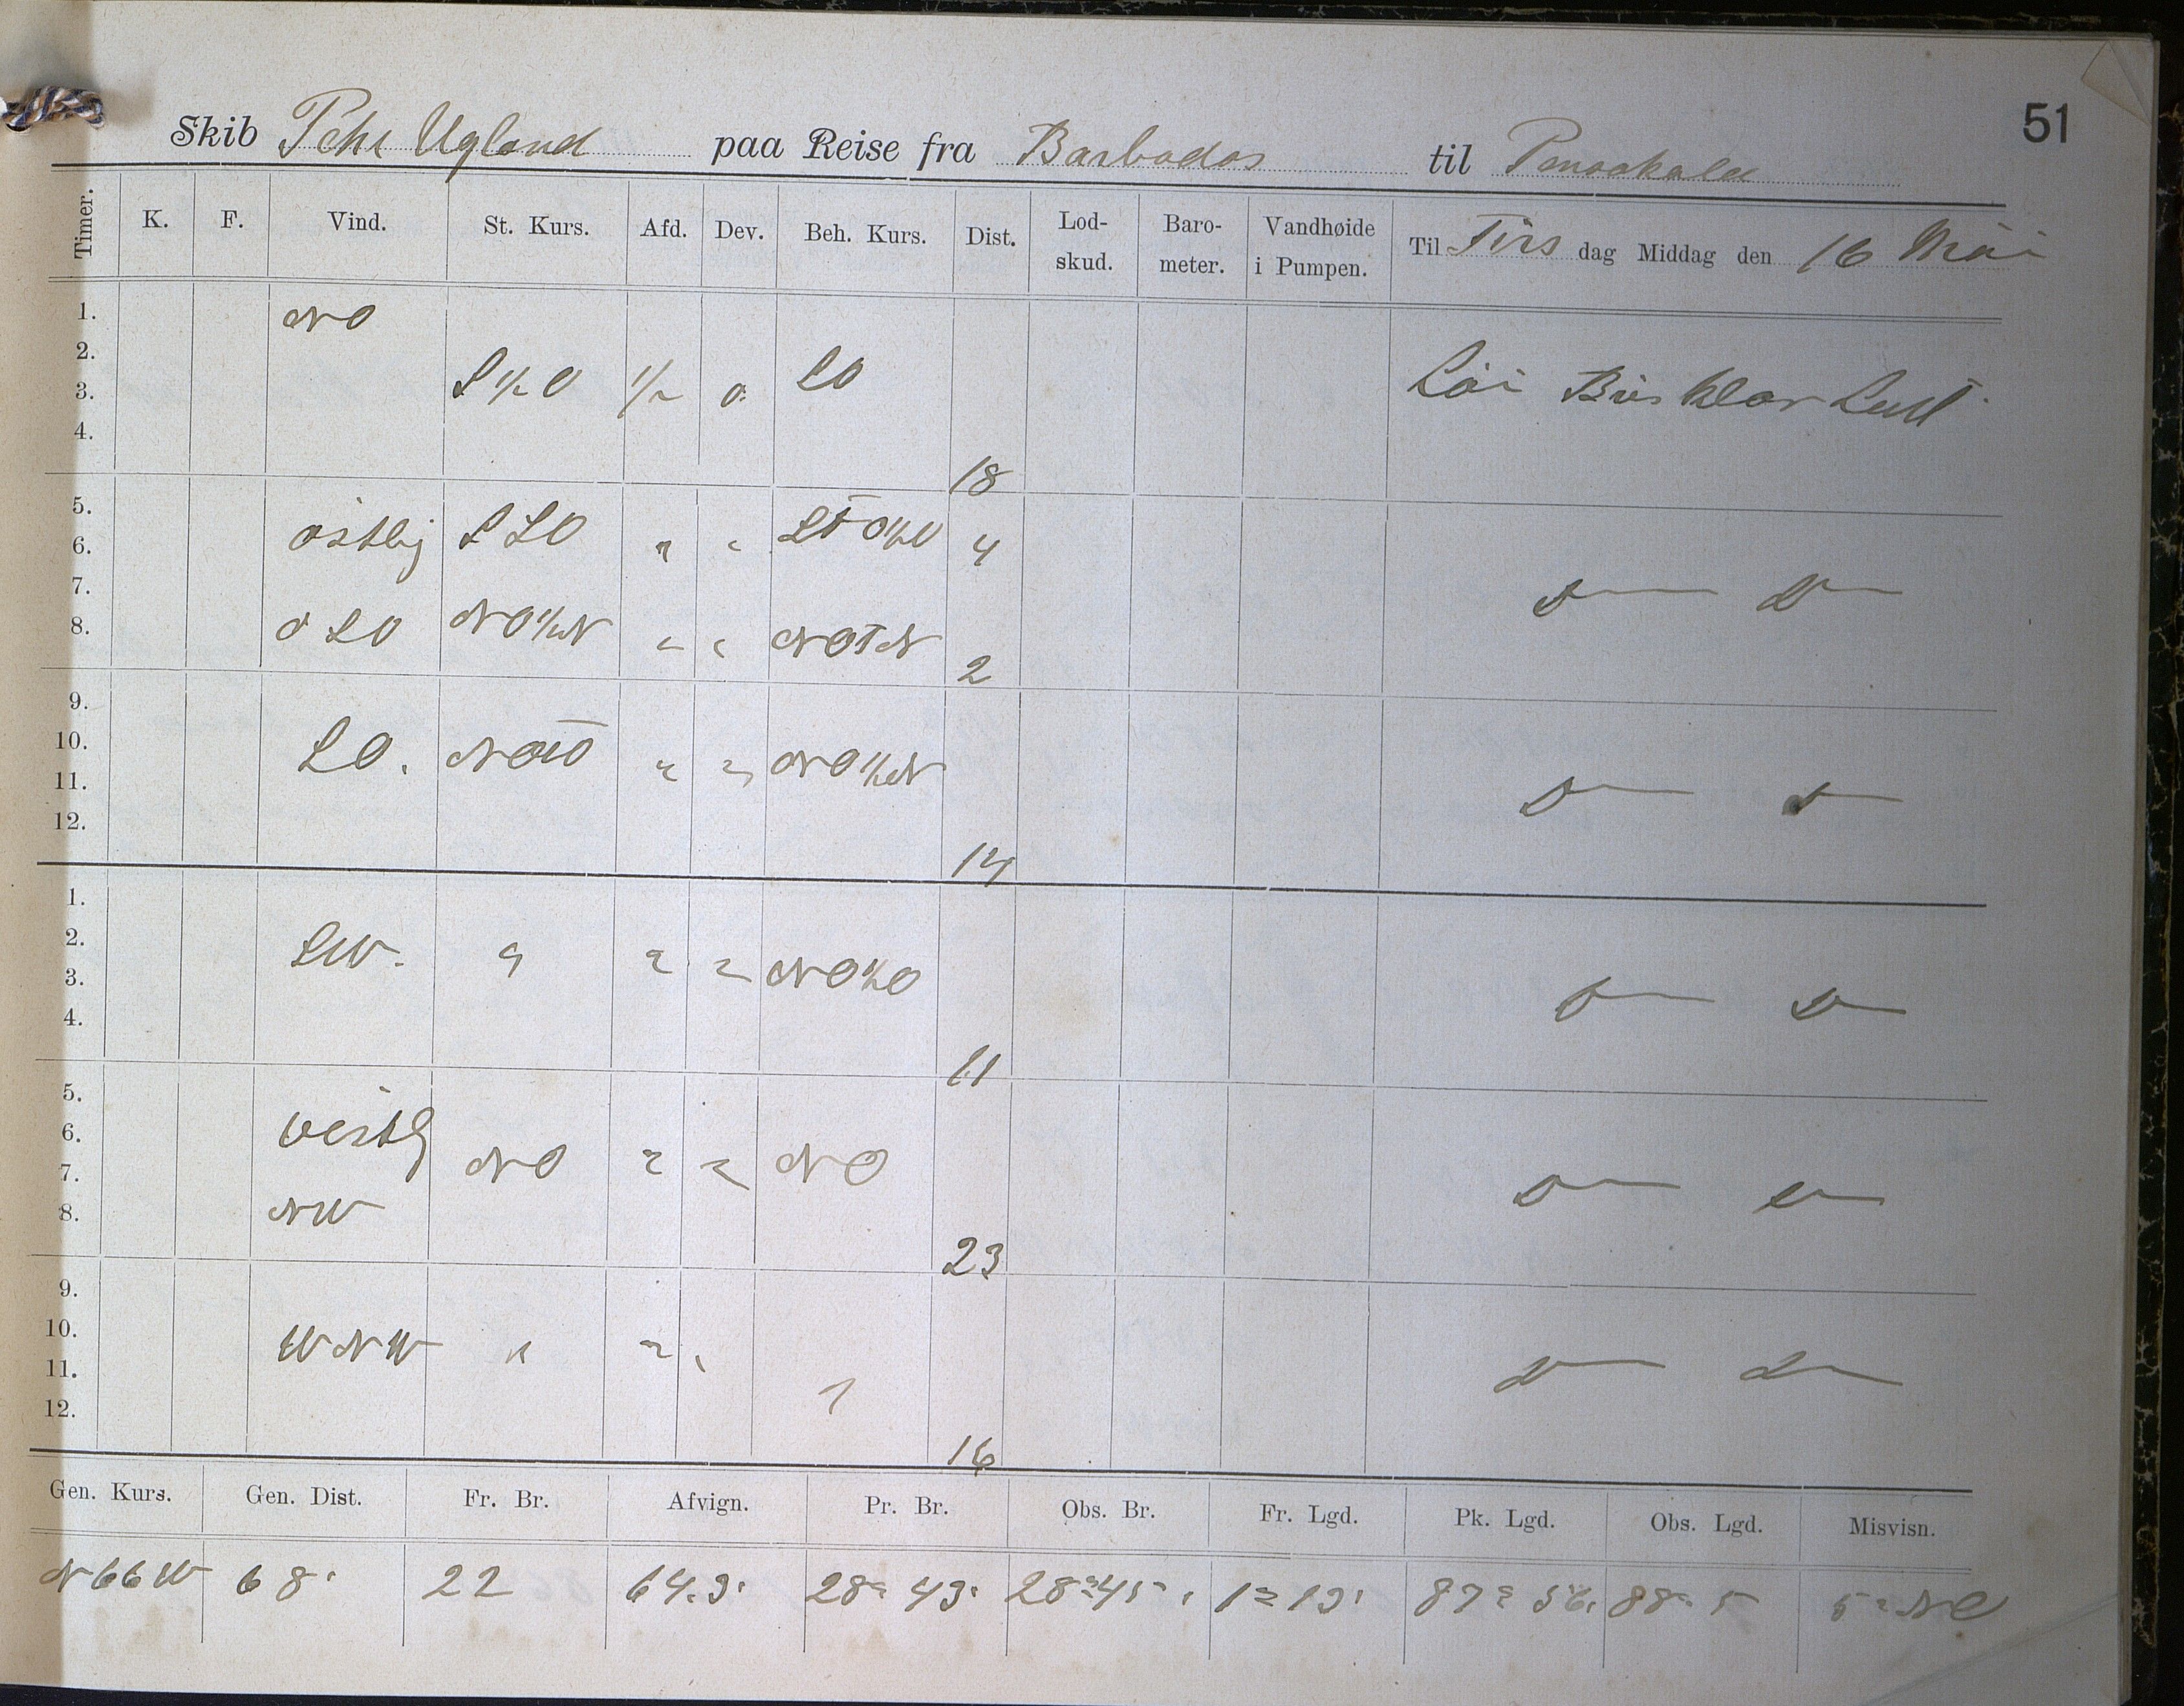 51
Skib Pehr Ugland paa Reise fra Barbados til Pensakola
Timer. K. F. Vind. St. Kurs. Afd. Dev. Beh. Kurs. Dist. Lod-skud. Baro-meter. Vandhøide i Pumpen. Til Tirs dag Middag den 16 Mai
1. NO
2.
3. S½O ½ 0 SO Löi Bris Klar Luft
4. 18
5.
6. östlig SSO " " 4
7. D— D—
8. OSO NO½N " " NOTN 2
9.
10. SO. NOTO " " NO½N
11. D— D—
12. 14
1.
2. SW. " " " NO½O
3. D— D—
4. 11
5.
6. vestlg
7. NO " " NO D— D—
8. NW 23
9.
10. WNW " " "
11. D— D—
12. " 16
Gen. Kurs. Gen. Dist. Fr. Br. Afvign. Pr. Br. Obs. Br. Fr. Lgd. Pk. Lgd. Obs. Lgd. Misvisn.
N66W 68' 22 64.3' 28° 43' 28° 45' 1° 13' 87° 56' 88° 5 5° NO